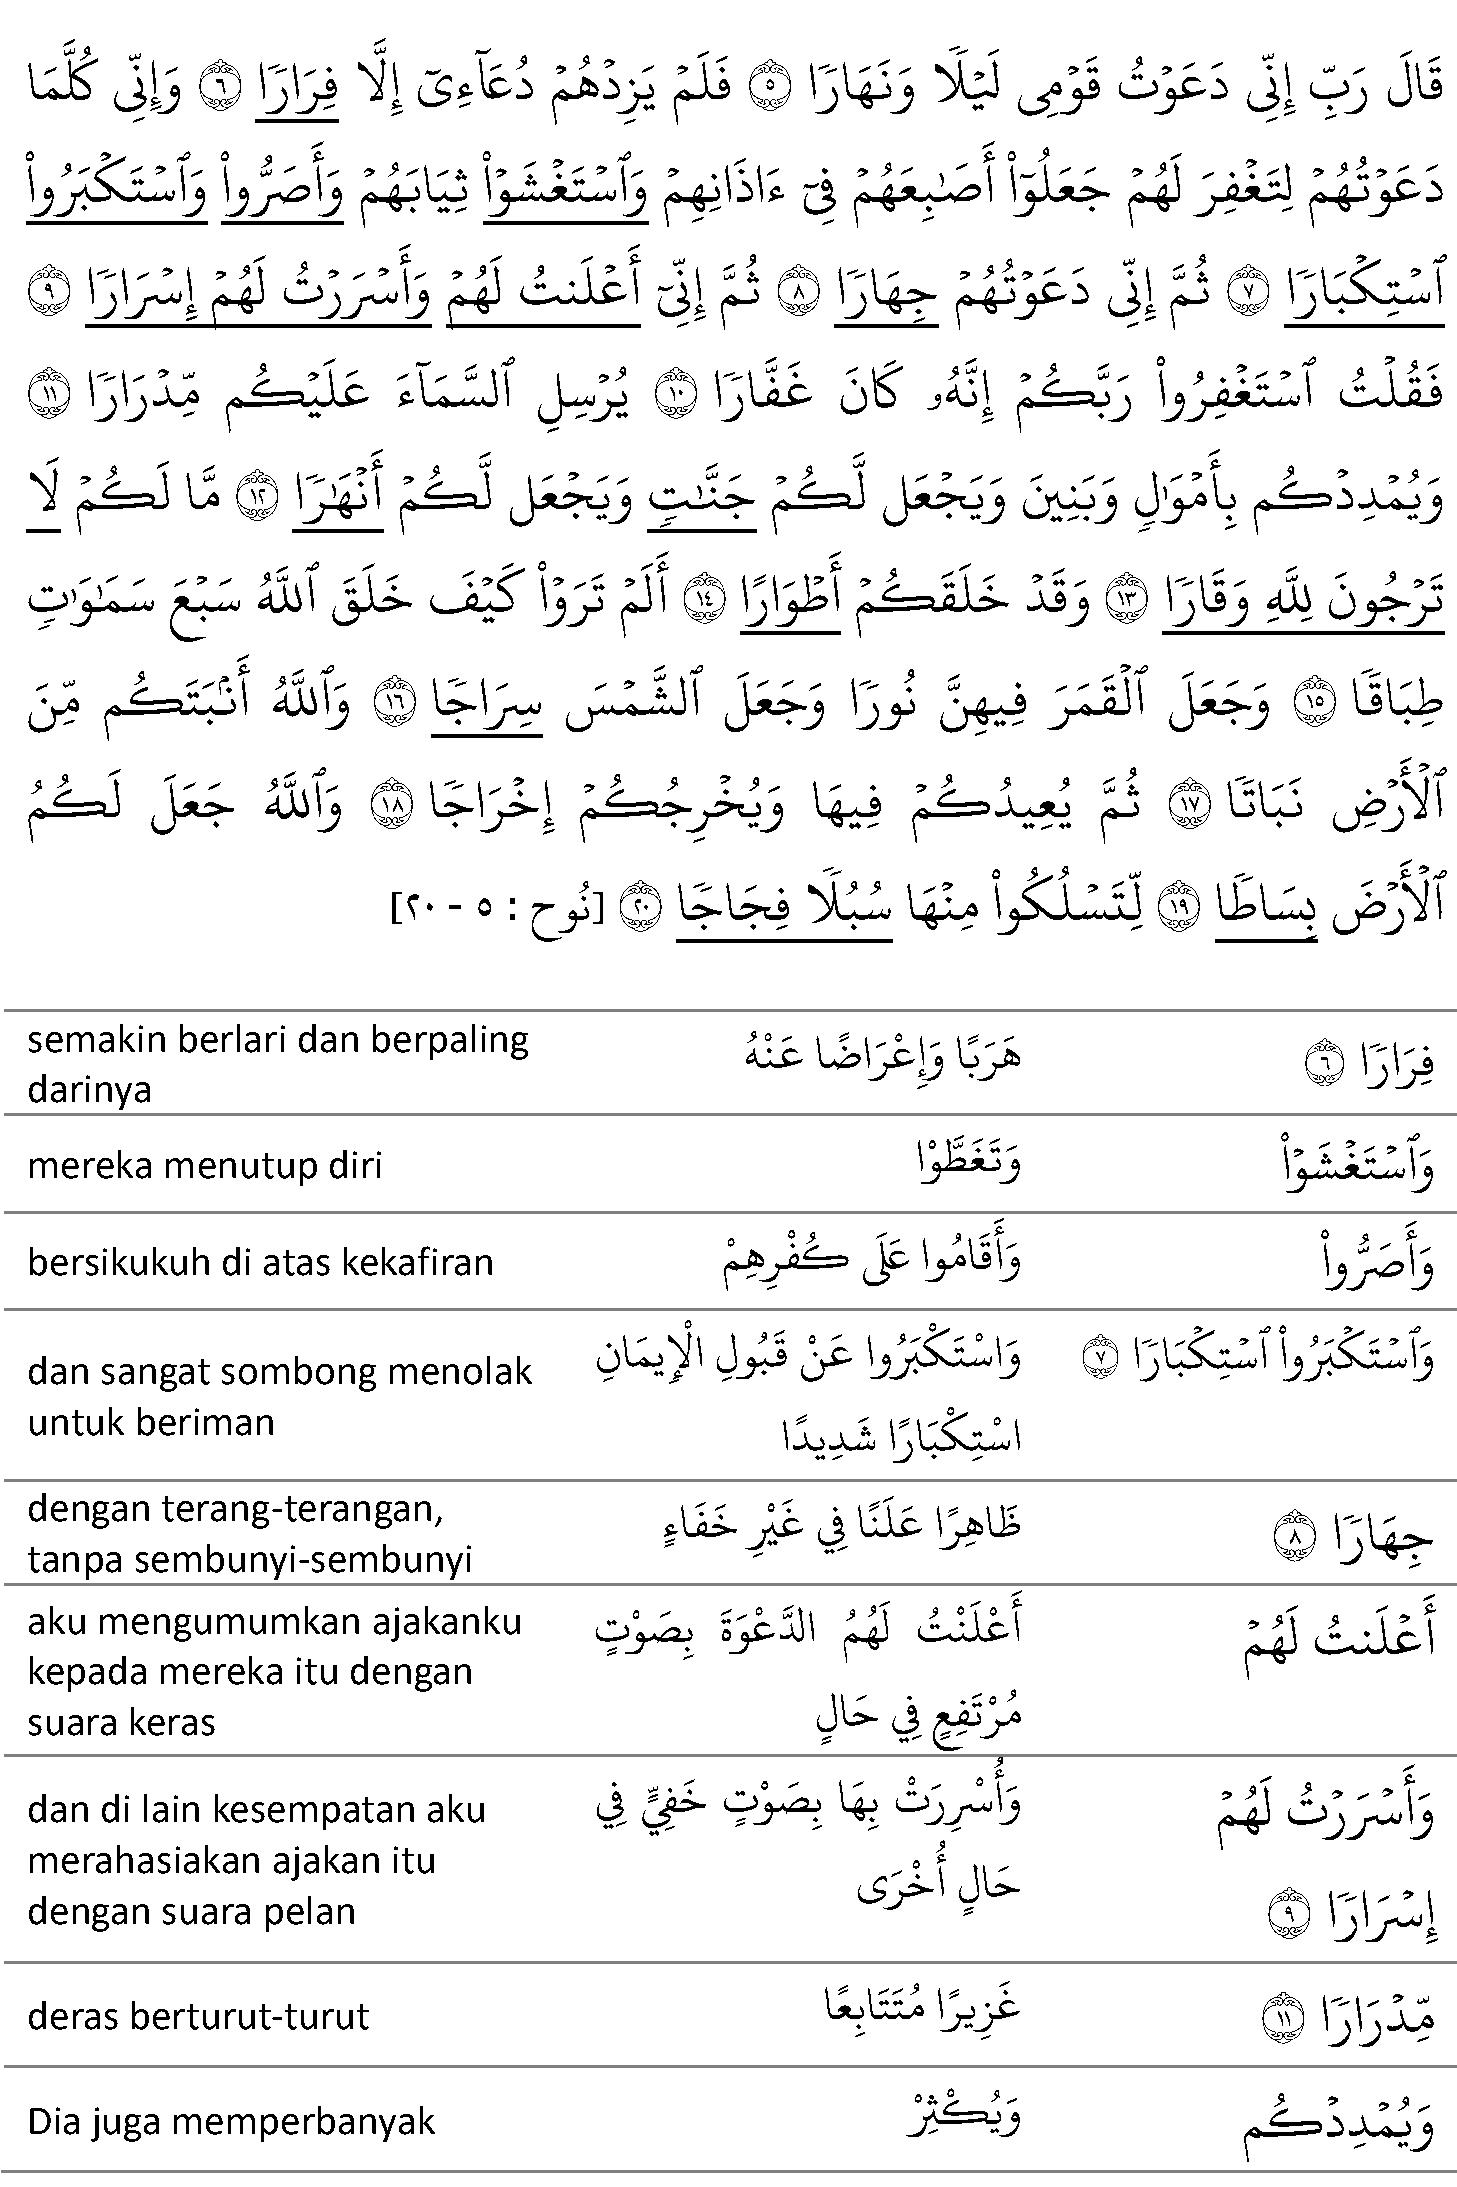 قَالَ رَبِّ إِنِّي دَعَوۡتُ قَوۡمِي لَيۡلٗا وَنَهَارٗا ٥ فَلَمۡ يَزِدۡهُمۡ دُعَآءِيٓ إِلَّا فِرَارٗا ٦ وَإِنِّي كُلَّمَا
دَعَوۡتُهُمۡ لِتَغۡفِرَ لَهُمۡ جَعَلُوٓاْ أَصَٰبِعَهُمۡ فِيٓ ءَاذَانِهِمۡ وَٱسۡتَغۡشَوۡاْ ثِيَابَهُمۡ وَأَصَرُّواْ وَٱسۡتَكۡبَرُواْ
ٱسۡتِكۡبَارٗا ٧ ثُمَّ إِنِّي دَعَوۡتُهُمۡ جِهَارٗا ٨ ثُمَّ إِنِّيٓ أَعۡلَنتُ لَهُمۡ وَأَسۡرَرۡتُ لَهُمۡ إِسۡرَارٗا ٩
فَقُلۡتُ ٱسۡتَغۡفِرُواْ رَبَّكُمۡ إِنَّهُۥ كَانَ غَفَّارٗا ١٠ يُرۡسِلِ ٱلسَّمَآءَ عَلَيۡكُم مِّدۡرَارٗا ١١
وَيُمۡدِدۡكُم بِأَمۡوَٰلٖ وَبَنِينَ وَيَجۡعَل لَّكُمۡ جَنَّٰتٖ وَيَجۡعَل لَّكُمۡ أَنۡهَٰرٗا ١٢ مَّا لَكُمۡ لَا
تَرۡجُونَ لِلَّهِ وَقَارٗا ١٣ وَقَدۡ خَلَقَكُمۡ أَطۡوَارًا ١٤ أَلَمۡ تَرَوۡاْ كَيۡفَ خَلَقَ ٱللَّهُ سَبۡعَ سَمَٰوَٰتٖ
طِبَاقٗا ١٥ وَجَعَلَ ٱلۡقَمَرَ فِيهِنَّ نُورٗا وَجَعَلَ ٱلشَّمۡسَ سِرَاجٗا ١٦ وَٱللَّهُ أَنۢبَتَكُم مِّنَ
ٱلۡأَرۡضِ نَبَاتٗا ١٧ ثُمَّ يُعِيدُكُمۡ فِيهَا وَيُخۡرِجُكُمۡ إِخۡرَاجٗا ١٨ وَٱللَّهُ جَعَلَ لَكُمُ
ٱلۡأَرۡضَ بِسَاطٗا ١٩ لِّتَسۡلُكُواْ مِنۡهَا سُبُلٗا فِجَاجٗا ٢٠ [نُوح : ٥ - ٢٠]
فِرَارٗا ٦
هَرَبًا وَإِعْرَاضًا عَنْهُ
semakin berlari dan berpaling
darinya
وَٱسۡتَغۡشَوۡاْ
وَتَغَطَّوْا
mereka menutup diri
وَأَصَرُّواْ
وَأَقَامُوا عَلَى كُفْرِهِمْ
bersikukuh di atas kekafiran
وَٱسۡتَكۡبَرُواْ ٱسۡتِكۡبَارٗا ٧
وَاسْتَكْبَرُوا عَنْ قَبُولِ الْإِيمَانِ
اسْتِكْبَارًا شَدِيدًا
dan sangat sombong menolak
untuk beriman
جِهَارٗا ٨
ظَاهِرًا عَلَنًا فِي غَيْرِ خَفَاءٍ
dengan terang-terangan,
tanpa sembunyi-sembunyi
أَعۡلَنتُ لَهُمۡ
أَعْلَنْتُ لَهُمُ الدَّعْوَةَ بِصَوْتٍ
مُرْتَفِعٍ فِي حَالٍ
aku mengumumkan ajakanku
kepada mereka itu dengan
suara keras
وَأَسۡرَرۡتُ لَهُمۡ
إِسۡرَارٗا ٩
وَأُسْرِرَتْ بِهَا بِصَوْتٍ خَفِيٍّ فِي
حَالٍ أُخْرَى
dan di lain kesempatan aku
merahasiakan ajakan itu
dengan suara pelan
مِّدۡرَارٗا ١١
غَزِيرًا مُتَتَابِعًا
deras berturut-turut
وَيُمۡدِدۡكُم
وَيُكْثِرْ
Dia juga memperbanyak